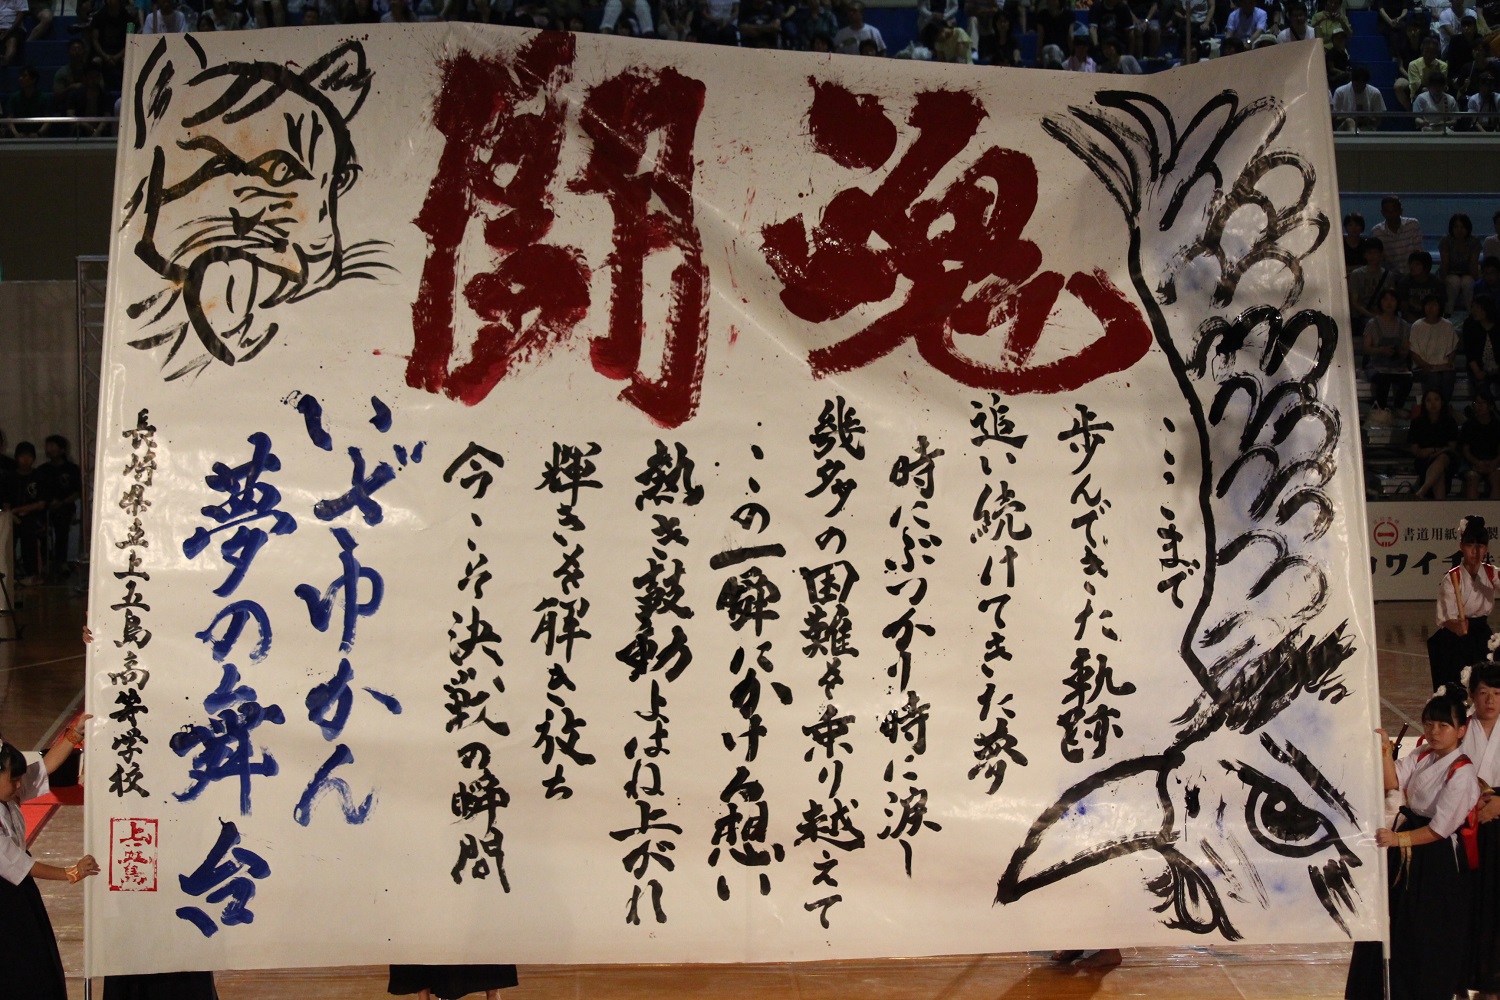 闘魂
ここまで
歩んできた軌跡
追い続けてきた夢
時にぶつかり時に涙し
幾多の困難を乗り越えて
この一瞬にかける想い
熱き鼓動よはね上がれ
輝きを解き放ち
今こそ決戦の瞬間
いざゆかん
夢の舞台
長崎県立上五島高等学校
上五島
書道用紙